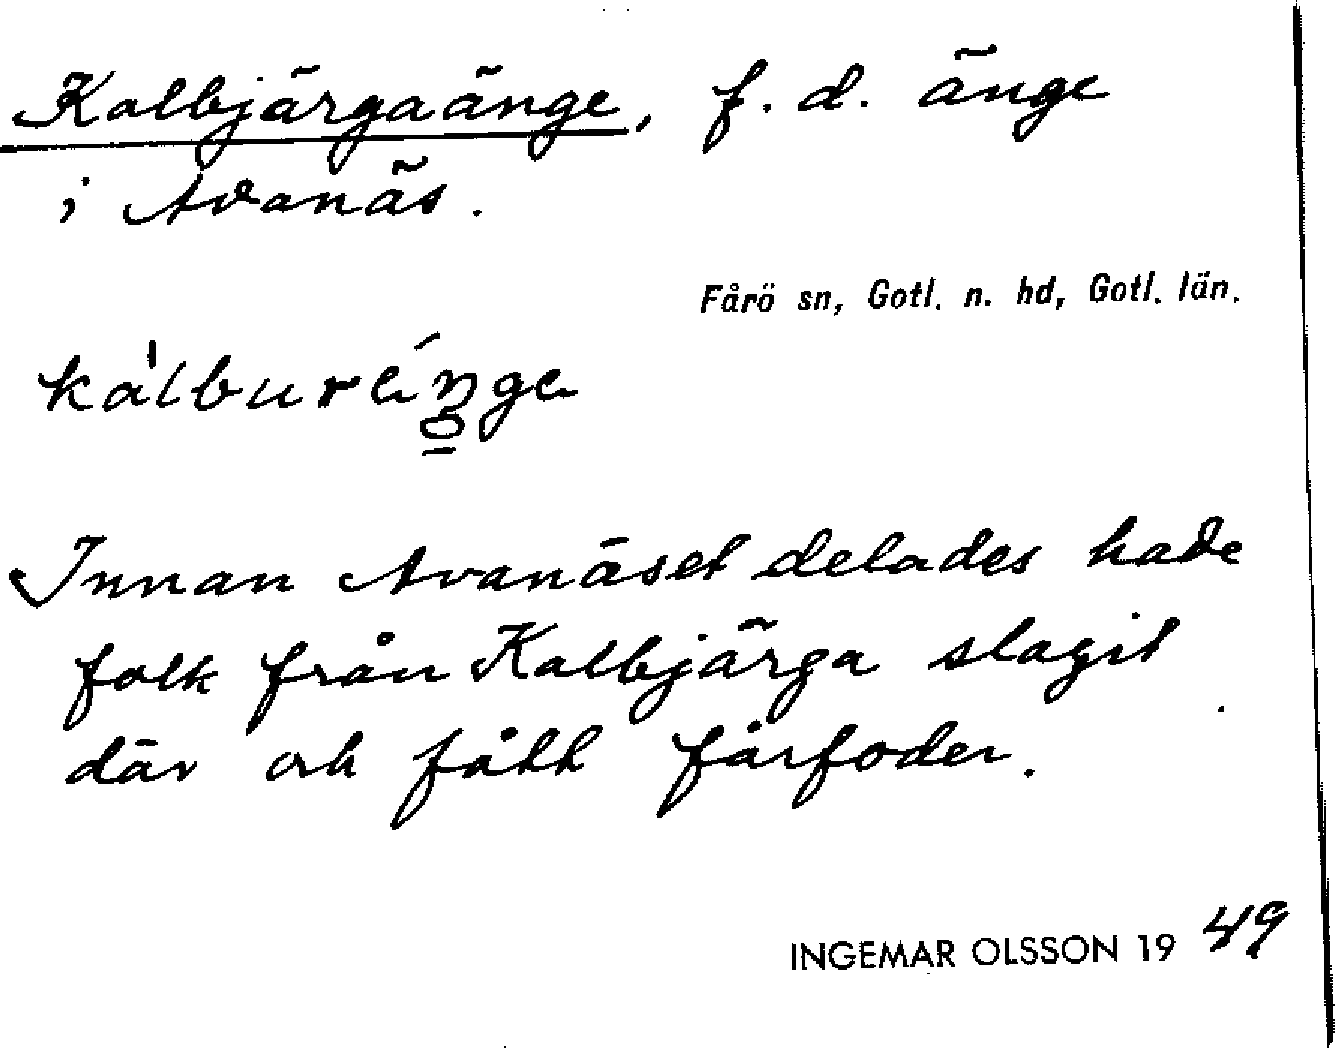 Kalbjärgaänge, f. d. änge
i Avanäs.
Fårö sn, Gotl. n. hd, Gotl. län.
Innan Avanäset delades hade
folk från Kalbjärga slagit
där och fått fårfoder.
INGEMAR OLSSON 19 49